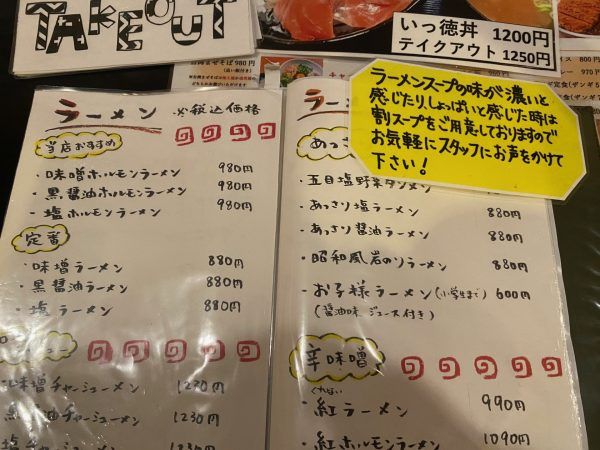 TAKEOUT
いっ徳丼 1200円
テイクアウト 1250円
ラーメンスープの味が濃いと
感じたり、しょっぱいと感じた時は
割スープをご用意しておりますので
お気軽にスタッフにお声をかけて
下さい！
ラーメン ※税込価格
当店おすすめ
・味噌ホルモンラーメン 980円
・黒醤油ホルモンラーメン 980円
・塩ホルモンラーメン 980円
定番
・味噌ラーメン 880円
・黒醤油ラーメン 880円
・塩ラーメン 880円
味噌チャーシューメン 1230円
黒醤油チャーシューメン 1230円
塩チャーシューメン 1230円
ラー
あっさ
・五目塩野菜タンメン
・あっさり塩ラーメン 880円
・あっさり醤油ラーメン 880円
・昭和風岩のりラーメン 880円
・お子様ラーメン(小学生まで) 600円
(醤油味 ジュース付き)
辛味噌
くれない
・紅ラーメン 990円
・紅ホルモンラーメン 1090円